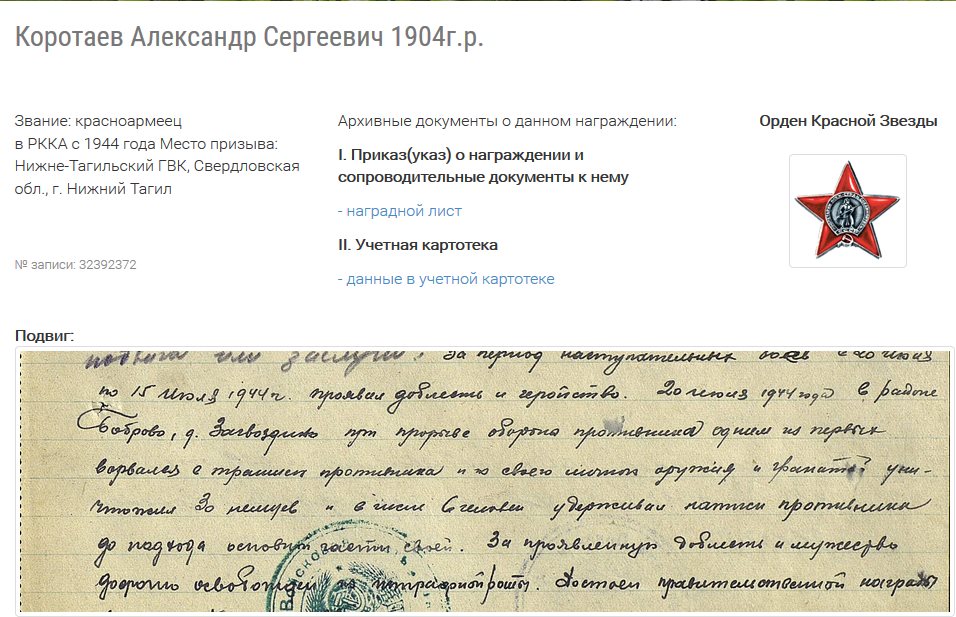 Коротаев Александр Сергеевич 1904г.р.
Звание: красноармеец
в РККА с 1944 года Место призыва:
Нижне-Тагильский ГВК, Свердловская
обл., г. Нижний Тагил
№ записи: 32392372
Архивные документы о данном награждении:
I. Приказ(указ) о награждении и
сопроводительные документы к нему
- наградной лист
II. Учетная картотека
- данные в учетной картотеке
Орден Красной Звезды
Подвиг:
подвига или заслуги. За период наступательных боев с 20 июня
по 15 июля 1944 г. проявил доблесть и геройство. 20 июня 1944 года в районе
Боброво, д. Загвоздино при прорыве обороны противника одним из первых
ворвался в траншеи противника и из своего личного оружия и гранатой уни-
чтожил 30 немцев и в числе 6 человек удерживал натиск противника
до подхода основных частей. За проявленную доблесть и мужество
досрочно освобожден из штрафной роты. Достоин правительственной награды